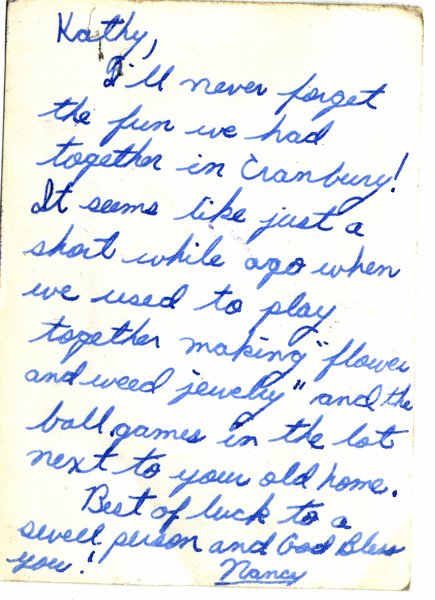 Kathy,
I'll never forget
the fun we had
together in Cranbury!
It seems like just a
short while ago when
we used to play
together making "flower
and weed jewelry" and the
ball games in the lot
next to your old home.
Best of luck to a
sweet person and God Bless
you!
Nancy